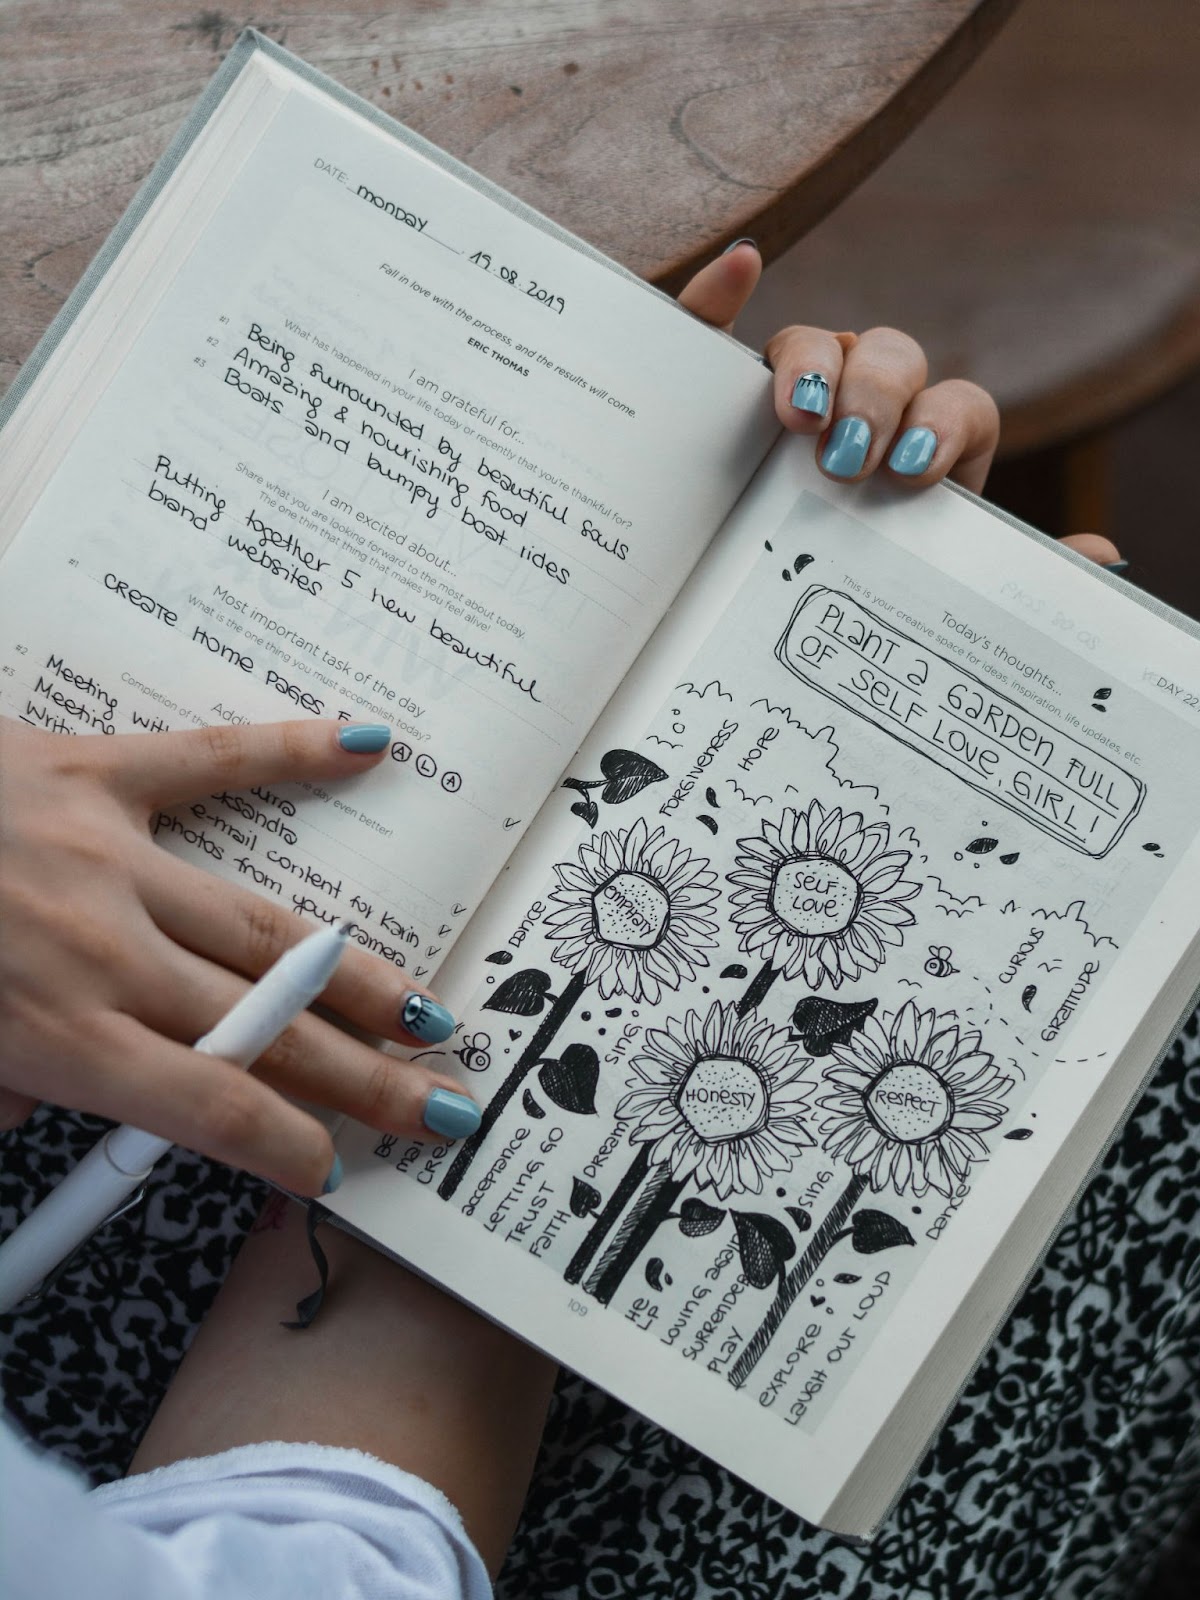 DATE: monday 19.08.2019
Fall in love with the process, and the results will come.
ERIC THOMAS
I am grateful for...
What has happened in your life today or recently that you're thankful for?
#1 Being surrounded by beautiful souls
#2 Amazing & nourishing food
#3 Boats and bumpy boat rides
I am excited about...
Share what you are looking forward to the most about today.
The one thin that thing that makes you feel alive!
Putting together 5 new beautiful
brand websites
Most important task of the day
What is the one thing you must accomplish today?
#1 Create Home Pages
A L A
Completion of the
day even better!
#2 Meeting with
#3 Meeting
e-mail content for Karin
photos from your camera
DAY 22
Today's thoughts...
This is your creative space for ideas, inspiration, life updates, etc.
PLANT a GARDEN FULL
OF SELF LOVE, GIRL!
FORGIVENESS
HOPE
EMPHATY
SELF
LOVE
Dance
CURIOUS
GRATITUDE
SING
HONESTY
RESPECT
Dream
acceptance
LETTING GO
TRUST
FAITH
SING
Dance
HE
LP
LOVING again
SURRENDER
PLAY
EXPLORE
LAUGH OUT LOUD
109